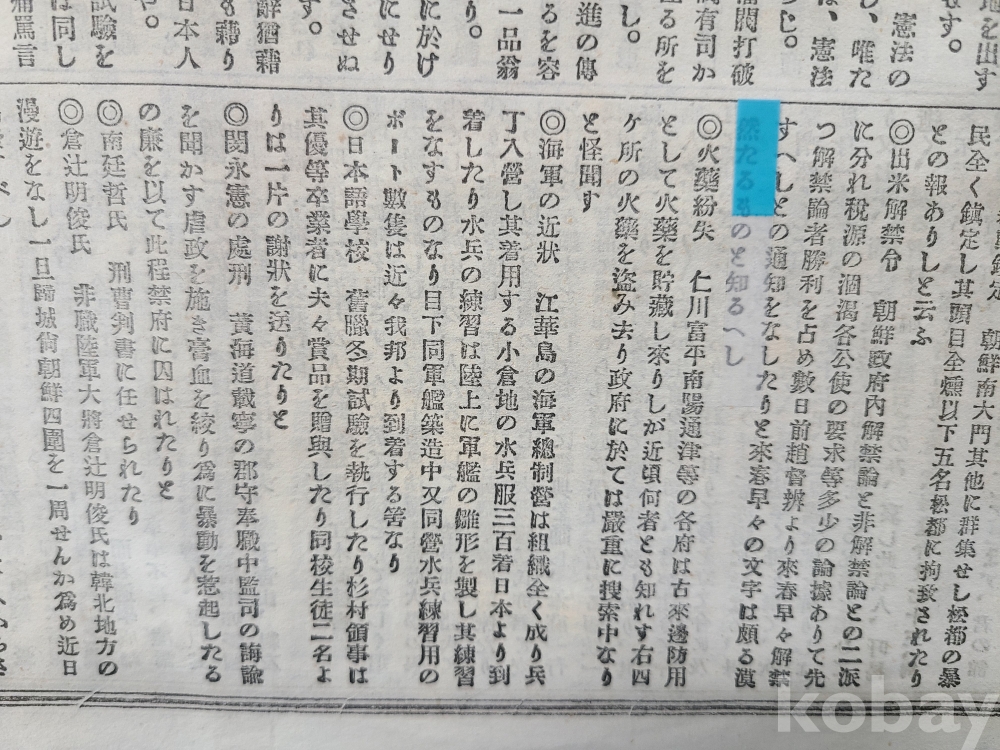 地を出す
す。
憲法の
し、唯た
は、憲法
じ。
閥打破
有司か
る所を
し。
進の傳
るを容
一品翁
り。
に於け
にせり
させぬ
す。
辭猶藉
も藉り
日本人
や。
試驗を
は同し
痛罵言
朝鮮南大門其他に群集せし松都の暴
民全く鎮定し其頭目全燻以下五名松都に拘致されたり
との報ありしと云ふ
◎出米解禁分 朝鮮政府内解禁論と非解禁論との二派
に分れ税源の涸渇各公使の要求等多少の論據ありて先
つ解禁論者勝利を占め數日前趙督辨より來春早々解禁
すへしとの通知をなしたりと來春早々の文字は頗る漠
然たるものと知るへし
◎火藥紛失 仁川富平南陽通津等の各府は古來邊防用
として火藥を貯藏し來りしが近頃何者とも知れす右四
ヶ所の火藥を盗み去り政府に於ては嚴重に搜索中なり
と怪聞す
◎海軍の近狀 江華島の海軍總制營は組織全く成り兵
丁入營し其着用する小倉地の水兵服三百着日本より到
着したり水兵の練習は陸上に軍艦の雛形を製し其練習
をなすものなり目下同軍艦築造中又同營水兵練習用の
ボート數隻は近々我邦より到着する筈なり
◎日本語學校 舊臘冬期試驗を執行したり杉村領事は
其優等卒業者に夫々賞品を贈與したり同校生徒二名よ
りは一片の謝狀を送りたりと
◎閔永憲の處刑 黃海道載寧の郡守奉職中監司の誨諭
を聞かす虐政を施き膏血を絞り爲に暴動を惹起したる
の廉を以て此程禁府に囚はれたりと
◎南廷哲氏 刑曹判書に任せられたり
◎倉辻明俊氏 非職陸軍大將倉辻明俊氏は韓北地方の
漫遊をなし一旦歸城尙朝鮮四圍を一周せんか爲め近日
kobay